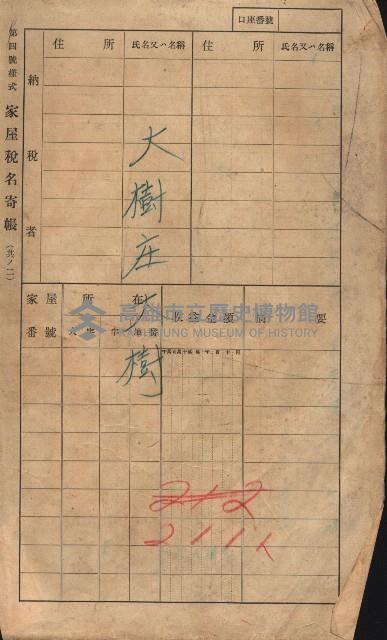 第四號樣式 家屋稅名寄帳 (共ノ二)
口座番號
納稅者
住所
氏名又ハ名稱
住所
氏名又ハ名稱
大樹庄
大樹
家屋番號
所在
大字
字
地番
要
高雄市立歷史博物館
KAOHSIUNG MUSEUM OF HISTORY
212
211